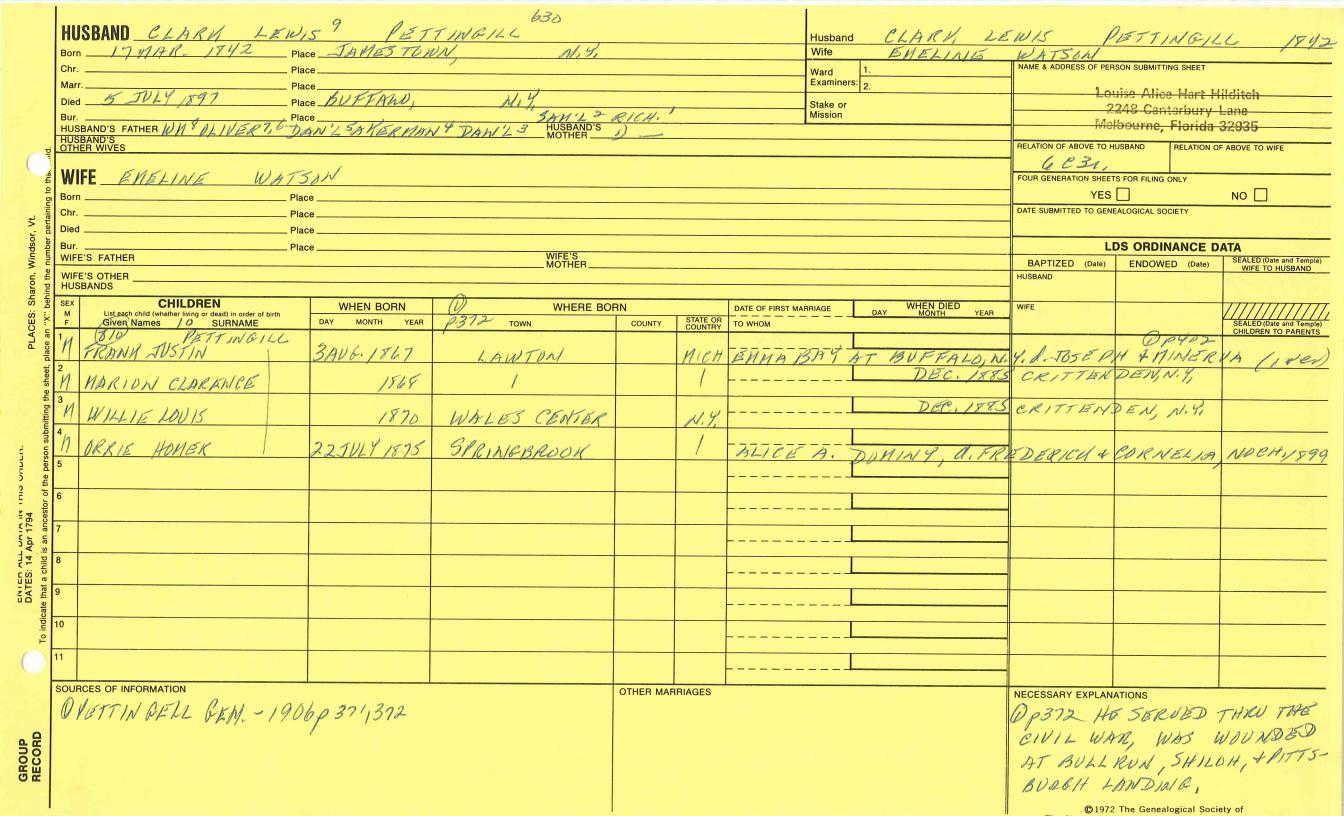 630
HUSBAND CLARK LEWIS 9 PETTINGILL
Born 17 MAR. 1842 Place JAMESTOWN, N.Y.
Chr. Place
Marr. Place
Died 5 JULY 1897 Place BUFFALO, N.Y.
Bur. Place SAM'L 2 RICH. 1
HUSBAND'S FATHER WM 8 OLIVER 7, 6 DAN'L 5 AKERMAN 4 DAN'L 3 HUSBAND'S MOTHER
HUSBAND'S OTHER WIVES
Husband CLARK LEWIS PETTINGILL 1842
Wife EMELINE WATSON
Ward Examiners: 1.
2.
Stake or Mission
NAME & ADDRESS OF PERSON SUBMITTING SHEET
Louise Alice Hart Hilditch
2248 Canterbury Lane
Melbourne, Florida 32935
RELATION OF ABOVE TO HUSBAND RELATION OF ABOVE TO WIFE
6C3r.
FOUR GENERATION SHEETS FOR FILING ONLY
YES NO
DATE SUBMITTED TO GENEALOGICAL SOCIETY
WIFE EMELINE WATSON
Born Place
Chr. Place
Died Place
Bur. Place
WIFE'S FATHER WIFE'S MOTHER
WIFE'S OTHER HUSBANDS
LDS ORDINANCE DATA
BAPTIZED (Date) ENDOWED (Date) SEALED (Date and Temple) WIFE TO HUSBAND
HUSBAND
WIFE
SEALED (Date and Temple) CHILDREN TO PARENTS
SEX M F CHILDREN WHEN BORN ① WHERE BORN DATE OF FIRST MARRIAGE WHEN DIED
List each child (whether living or dead) in order of birth
Given Names 10 SURNAME DAY MONTH YEAR p372 TOWN COUNTY STATE OR COUNTRY TO WHOM DAY MONTH YEAR
(810) PETTINGILL ① p402
1 M FRANK JUSTIN 3 AUG. 1867 LAWTON MICH EMMA BAY AT BUFFALO, N.Y. d. JOSEPH & MINERVA
2 M MARION CLARENCE 1868 DEC. 1885 CRITTENDEN, N.Y.
3 M WILLIE LOUIS 1870 WALES CENTER N.Y. DEC. 1885 CRITTENDEN, N.Y.
4 M ORRIE HOMER 22 JULY 1875 SPRINGBROOK ALICE A. DOMINY, d. FREDERICK & CORNELIA, NO CH. 1899
5
6
7
8
9
10
11
SOURCES OF INFORMATION
① PETTINGELL GEN. - 1906 p 371, 372
OTHER MARRIAGES
NECESSARY EXPLANATIONS
① p372 HE SERVED THRU THE
CIVIL WAR, WAS WOUNDED
AT BULL RUN, SHILOH, & PITTS-
BURGH LANDING.
©1972 The Genealogical Society of
PLACES: Sharon, Windsor, Vt.
DATES: 14 Apr 1794
To indicate that a child is an ancestor of the person submitting the sheet, place an "X" behind the number pertaining to
GROUP RECORD